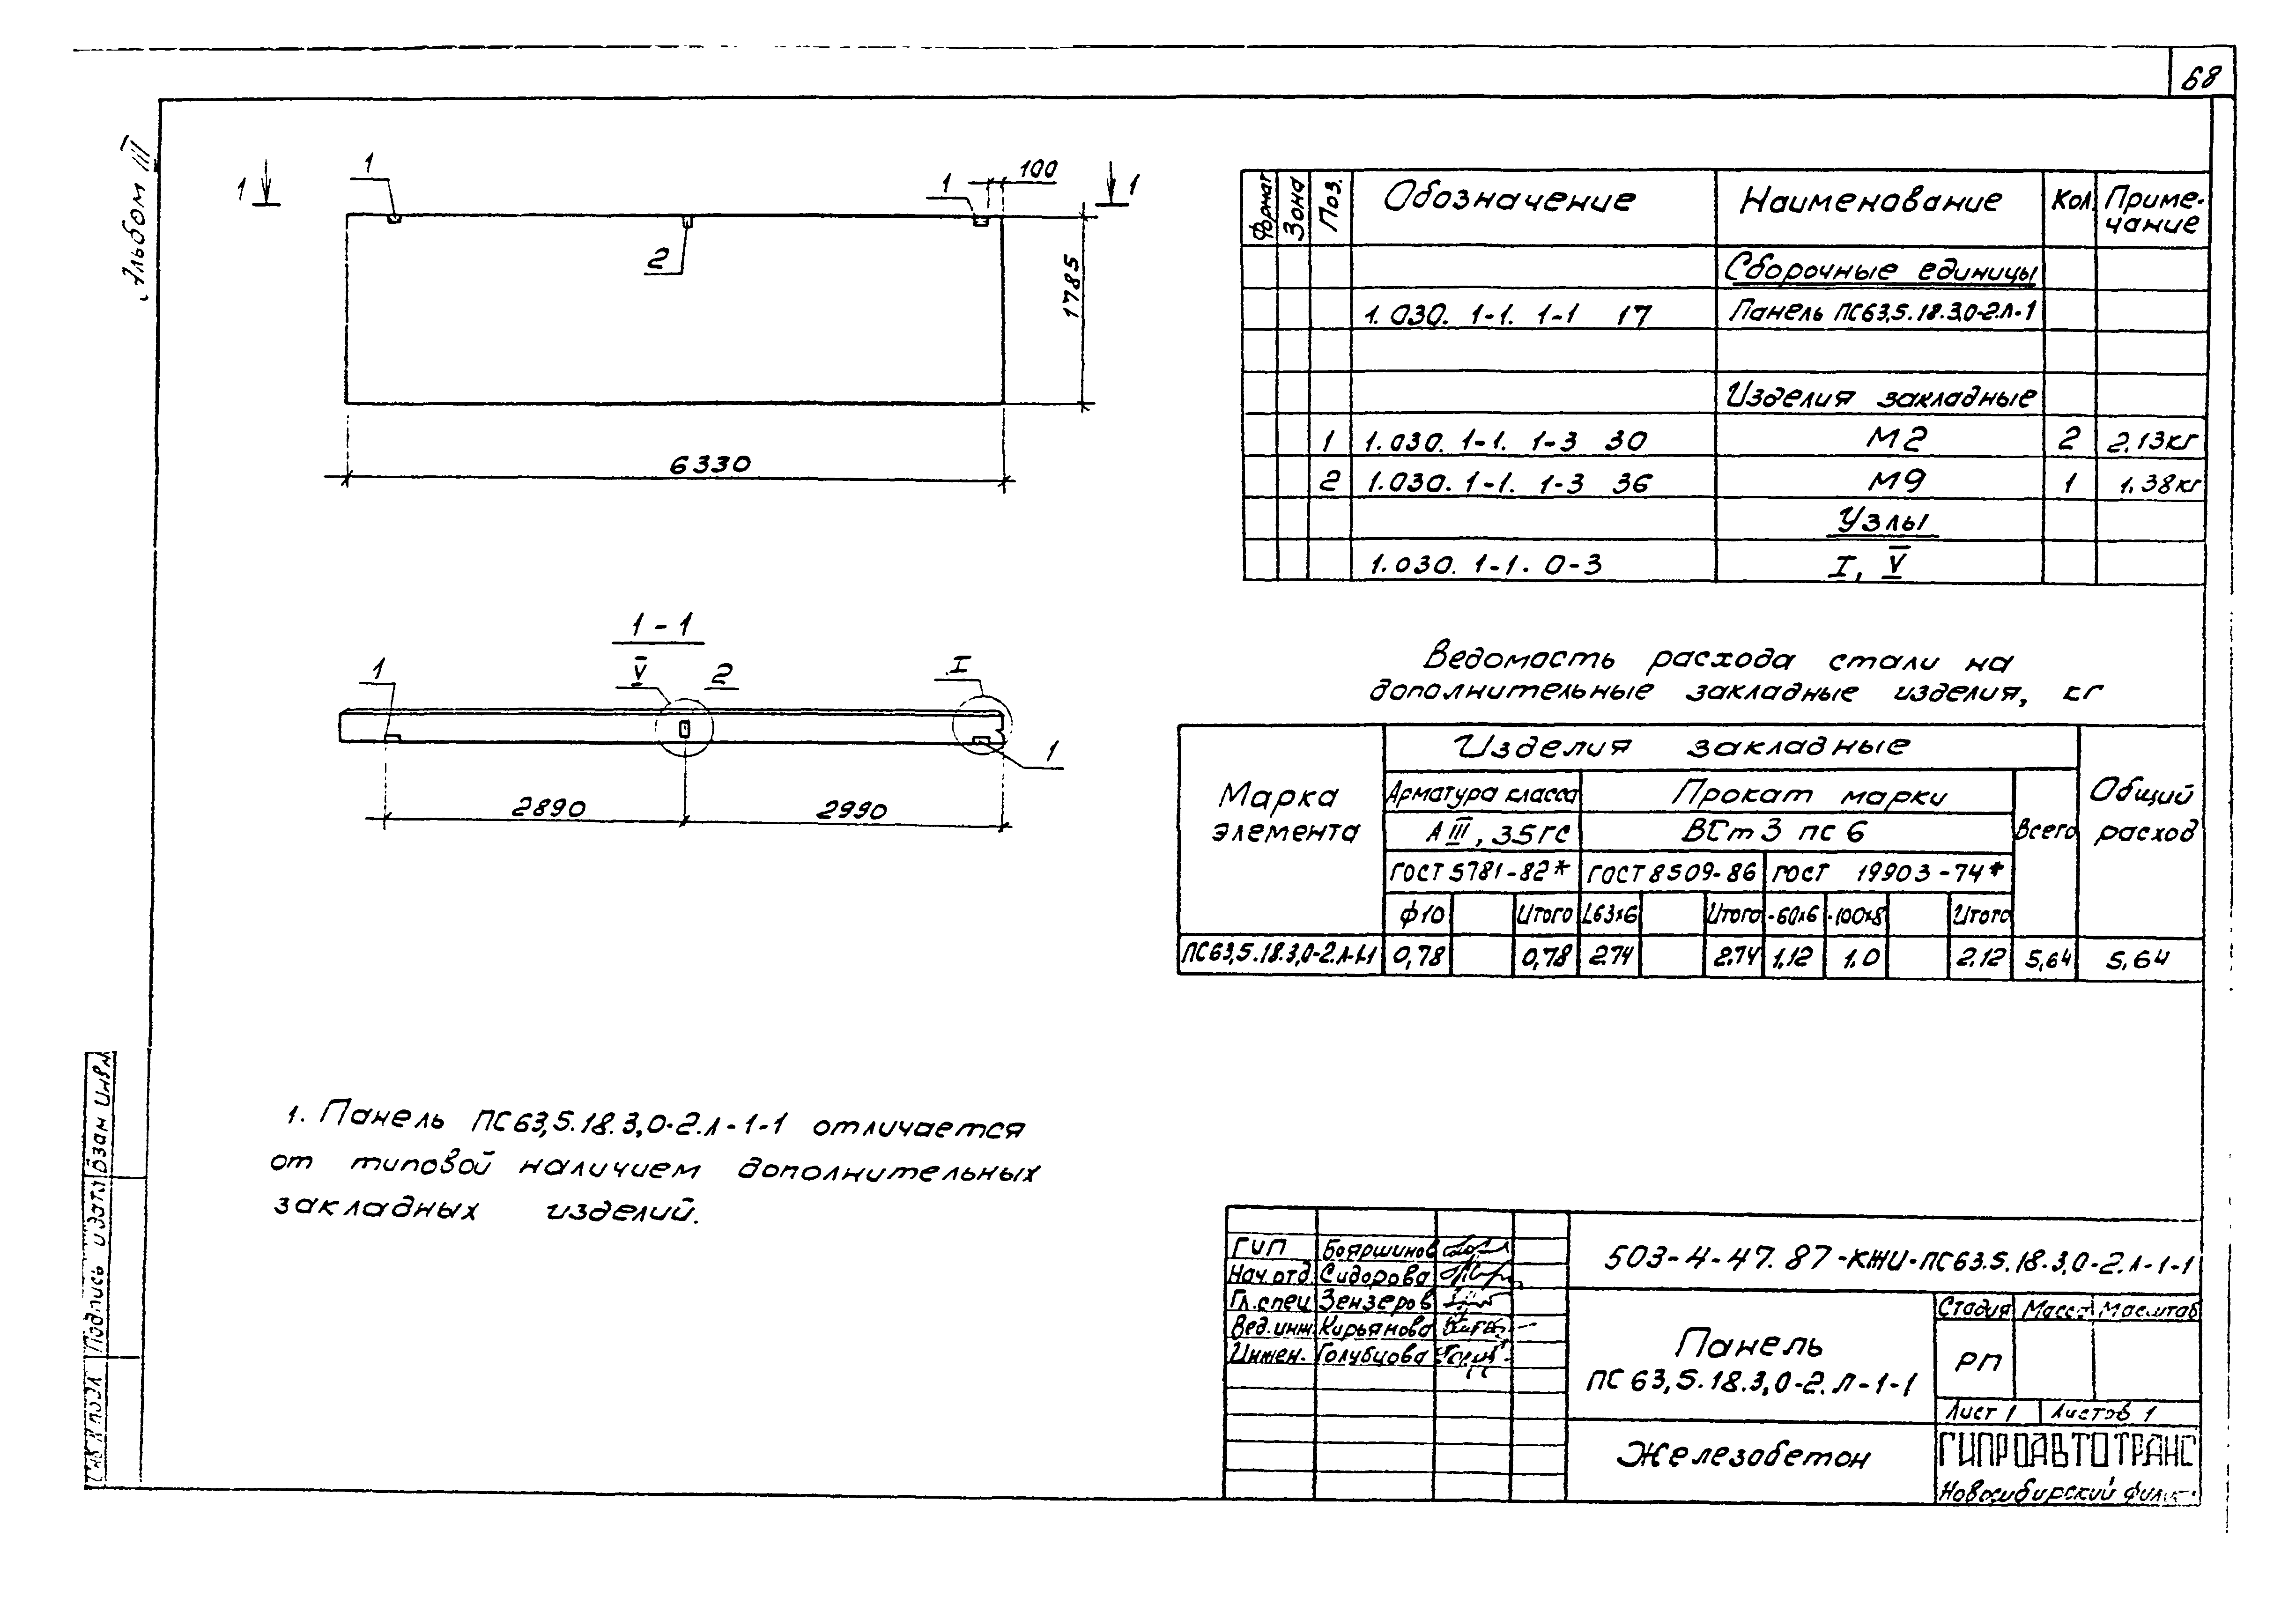 68
Альбом III
1
1
1
100
1
2
1785
6330
1-1
1
V
2
I
1
2890
2990
Формат
Зона
Поз.
Обозначение
Наименование
Кол.
Приме-
чание
Сборочные единицы
1.030. 1-1. 1-1 17
Панель ПС63,5.18.3,0-2.Л-1
Изделия закладные
1 1.030. 1-1. 1-3 30 М2 2 2,13кг
2 1.030. 1-1. 1-3 36 М9 1 1.38кг
Узлы
1.030. 1-1. 0-3 I, V
Ведомость расхода стали на
дополнительные закладные изделия, кг
Марка
элемента
Изделия закладные
Общий
расход
Арматура класса
Прокат марки
Всего
АIII, 35ГС
ВСт3 пс 6
ГОСТ 5781-82*
ГОСТ 8509-86
ГОСТ 19903-74*
ф10
Итого
L63х6
Итого
-60х6
-100х8
Итого
ПС63,5.18.3,0-2.Л-1-1 0,78 0,78 2.74 2.74 1,12 1.0 2.12 5,64 5.64
1. Панель ПС63,5.18.3,0-2.Л-1-1 отличается
от типовой наличием дополнительных
закладных изделий.
Взам инв N
Подпись и дата
Инв N подл
ГИП Бояршинов
Нач.отд Сидорова
Гл.спец Зензеров
Вед.инж Кирьянова
Инжен. Голубцова
503-4-47.87-КЖИ-ПС63.5.18.3,0-2.Л-1-1
Панель
ПС 63,5.18.3,0-2.Л-1-1
Стадия Масса Масштаб
РП
Лист 1 Листов 1
Железобетон
ГИПРОАВТОТРАНС
Новосибирский филиал